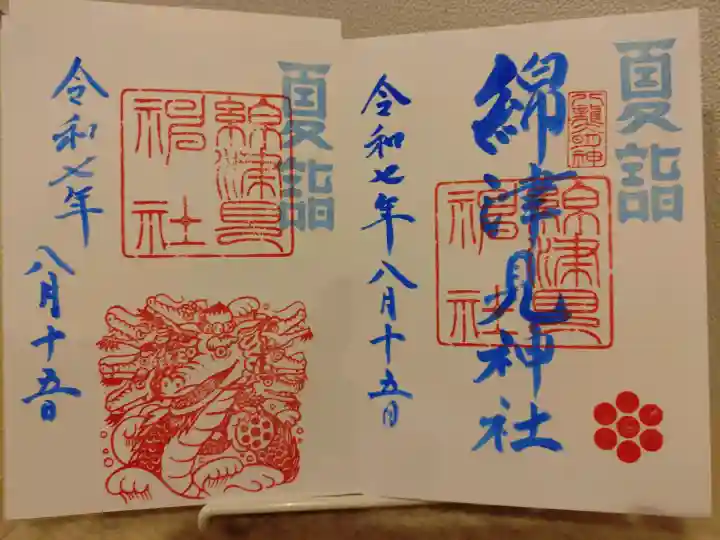 夏詣
八龍明神
綿津見神社
綿津見
神社
令和七年八月十五日
夏詣
綿津見
神社
令和七年
八月十五日